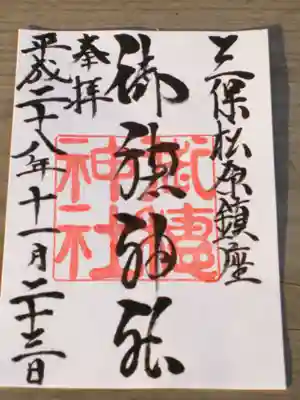 三保松原鎮座
御穗神社
奉拝
平成二十八年十一月二十三日
御穗
神社